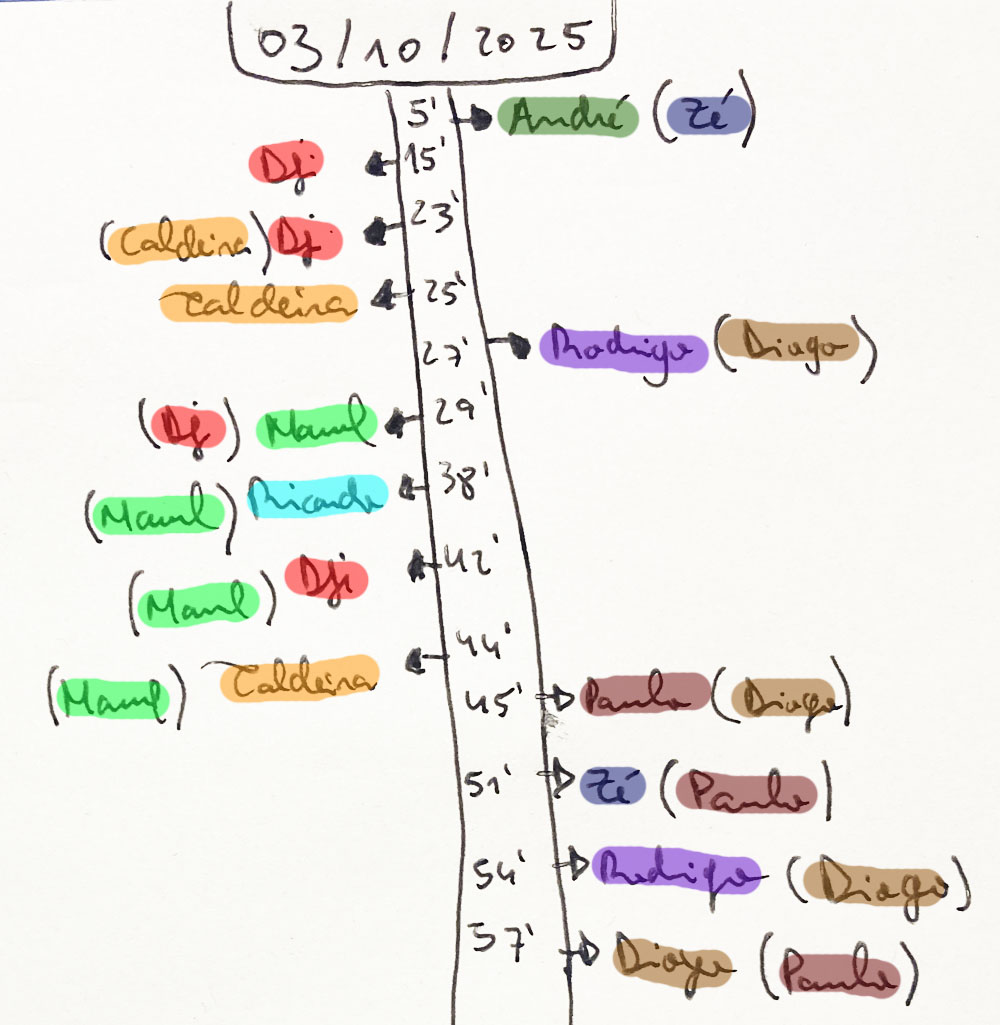 03/10/2025
5' André (Zé)
Dj 15'
(Caldeira) Dj 23'
Caldeira 25'
27' Rodrigo (Diogo)
(Dj) Manel 29'
(Manel) Ricardo 38'
(Manel) Dji 42'
(Manel) Caldeira 44'
45' Paulo (Diogo)
51' Zé (Paulo)
54' Rodrigo (Diogo)
57' Diogo (Paulo)